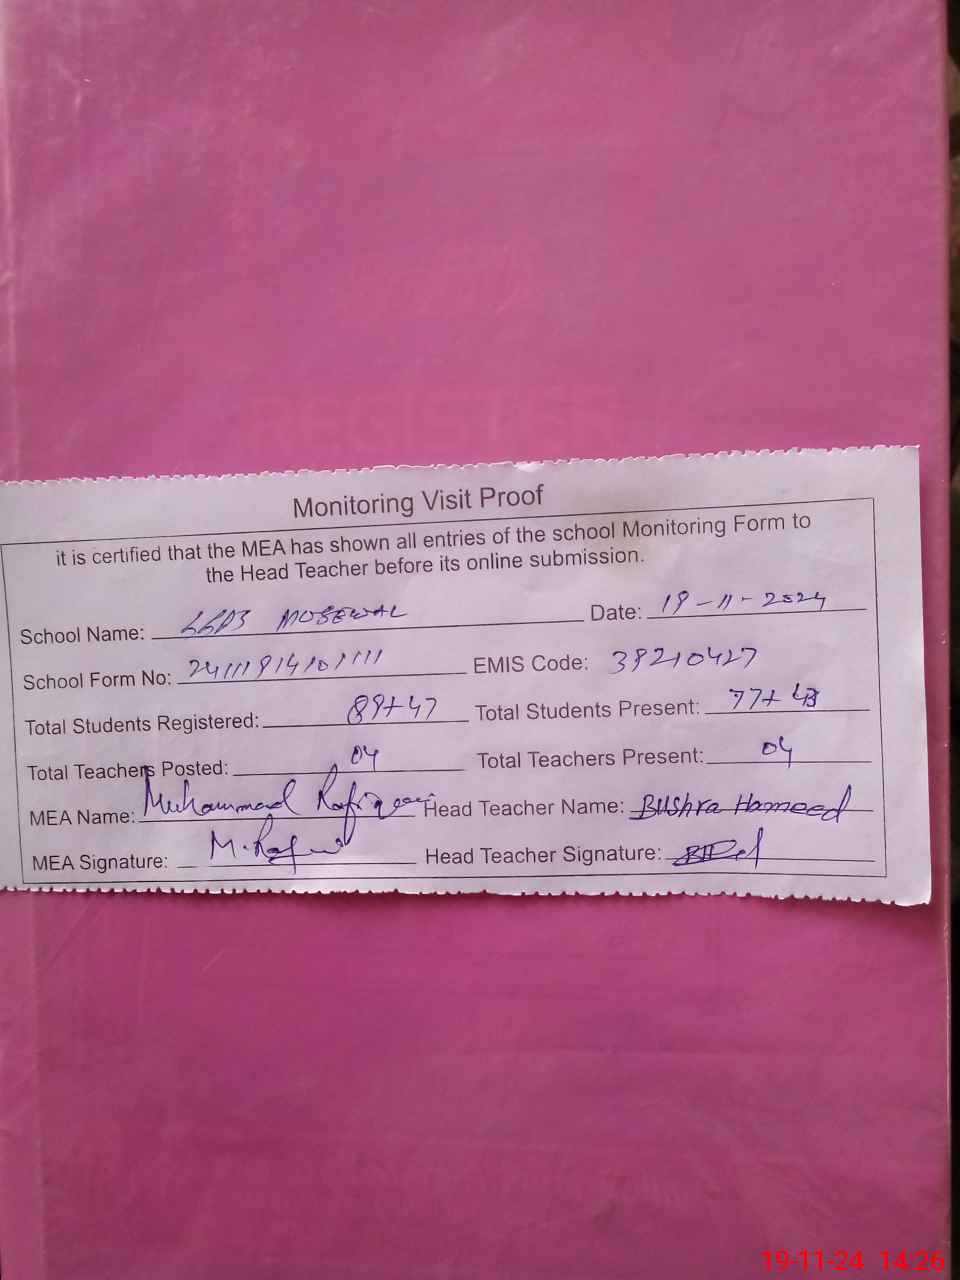 REGISTER
Monitoring Visit Proof
it is certified that the MEA has shown all entries of the school Monitoring Form to
the Head Teacher before its online submission.
School Name: MOSEWAL Date: 19-11-2024
School Form No: EMIS Code: 38210427
Total Students Registered: 89+47 Total Students Present: 77+43
Total Teachers Posted: 04 Total Teachers Present: 04
MEA Name: Muhammad Rafique Head Teacher Name: Bushra Hameed
MEA Signature: M. Rafiq Head Teacher Signature:
19-11-24 14:26